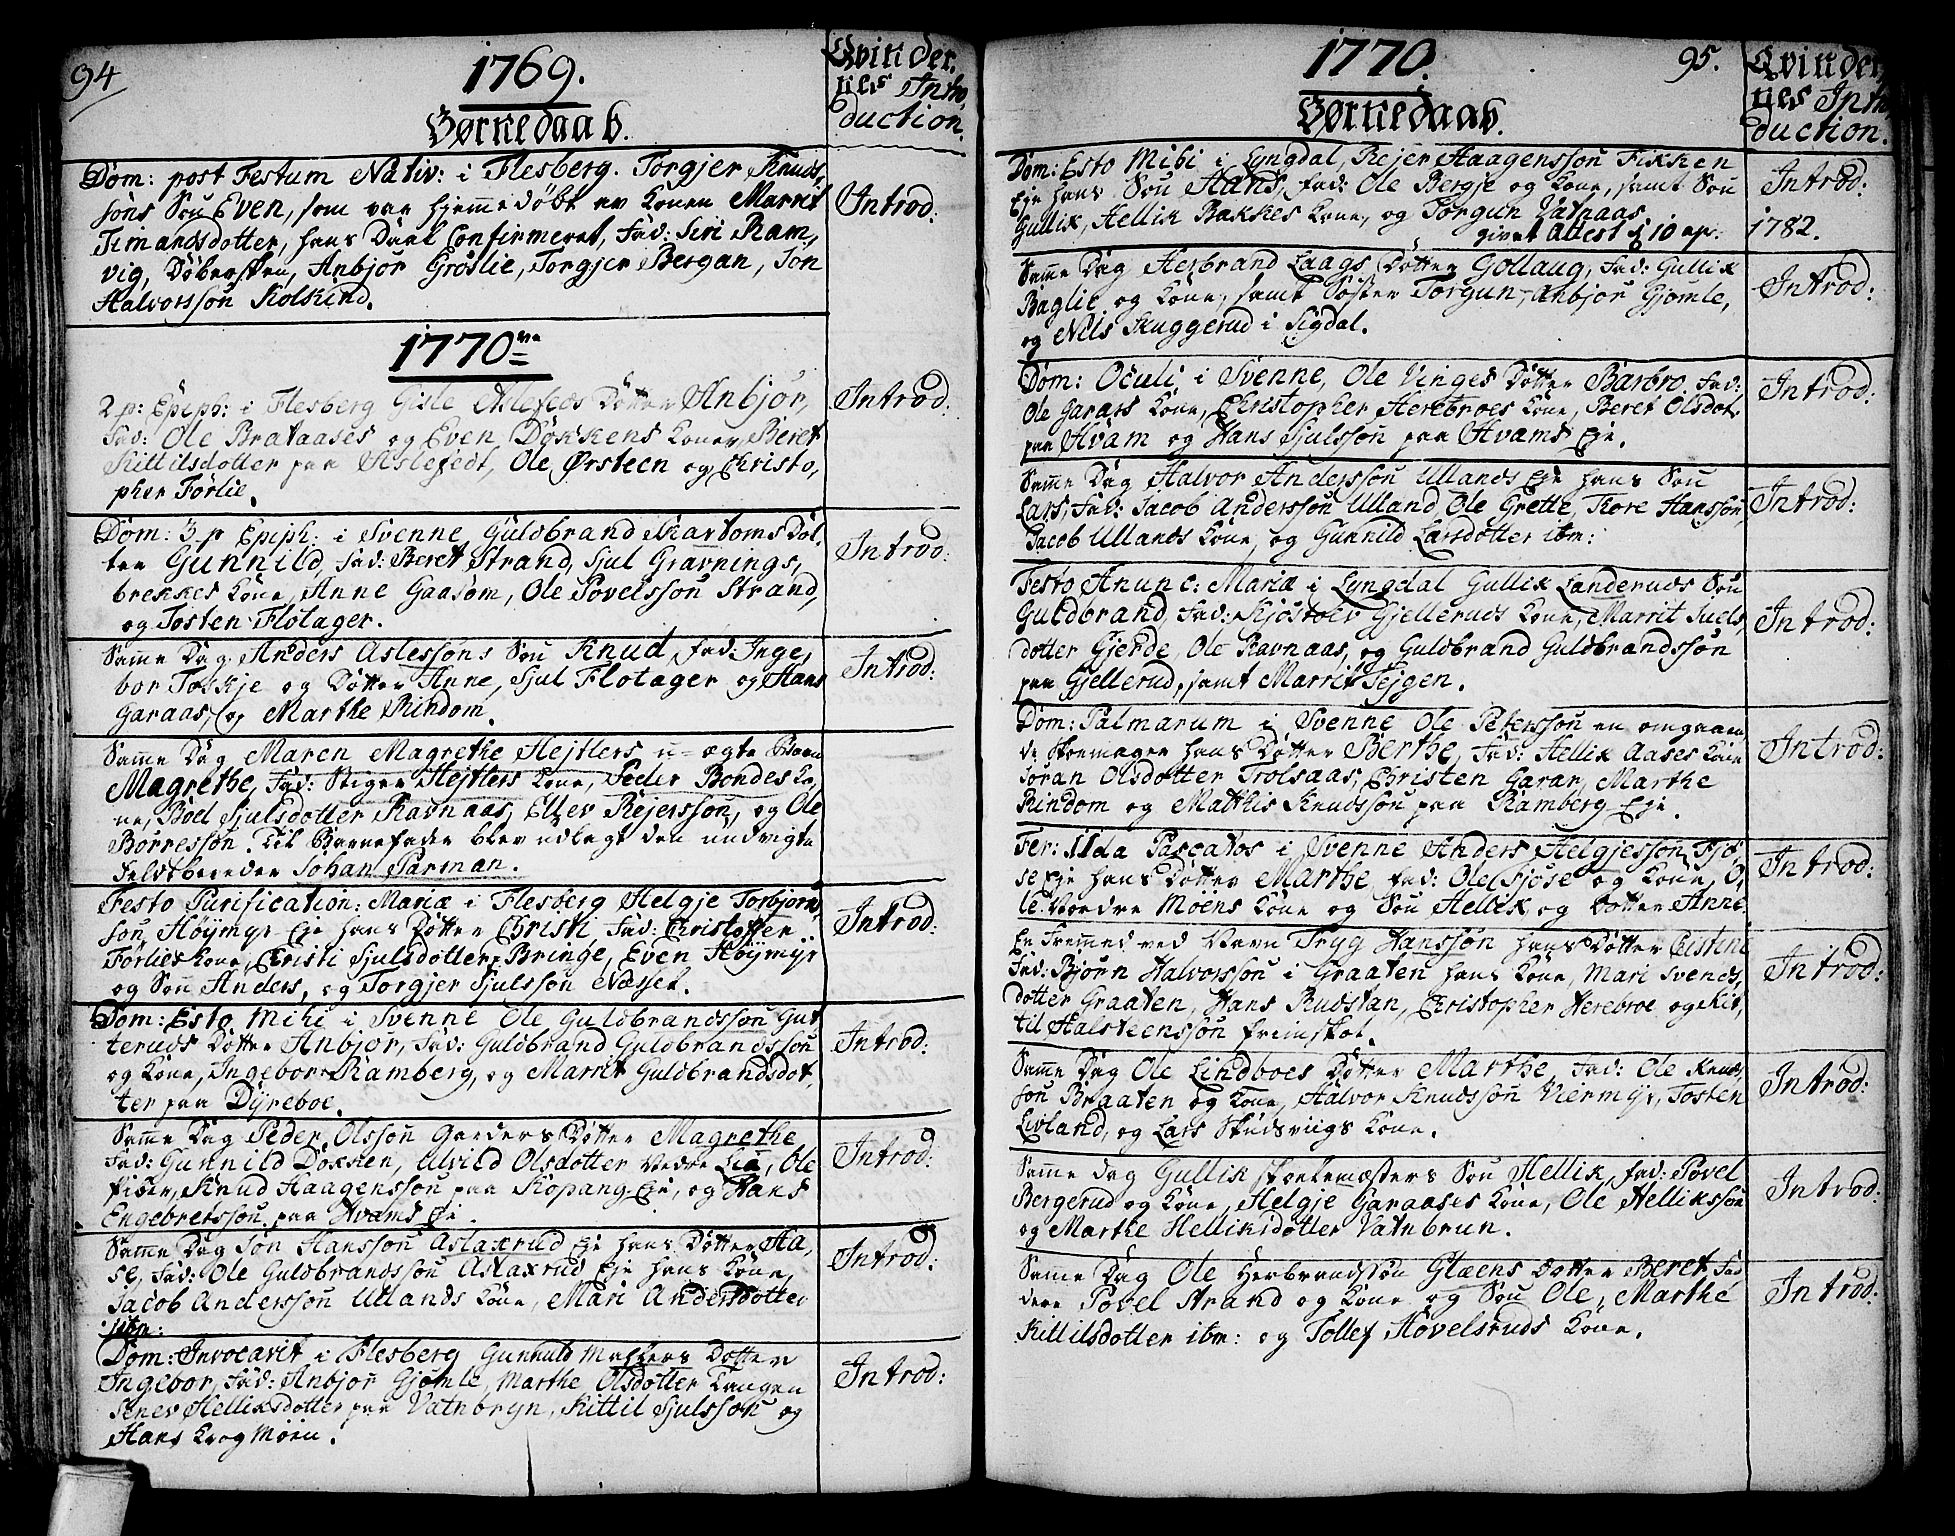 94
1769.
Qvinder,
nes Intro,
duction.
Børnedaab.
Dom: post Festum Nativ: i Flesberg. Torgjer Knuds,
søns Søn Even, som var hjemme døbt av Konen Marrit
Timandsdotter, hans Daab Confirmeret, Fad: Siri Ram,
vig, Døbersken, Anbjør Grøslie, Torgjer Bergan, Jon
Halvorssøn Kolskind.
Introd:
1770
2 p: Epiph: i Flesberg Gisle Aslefets Dotter Anbjør,
Fad: Ole Brataases og Even Døkkens Koner, Beret
Kittilsdotter paa Aslefedt, Ole Ørsteen og Christo,
pher Førlie.
Introd:
Dom: 3 p Epiph: i Svenne Guldbrand Skartoms Dot,
ter Gunnild, Fad: Beret Strand, Sjul Gravnings,
brekkes Kone, Anne Gaasøm, Ole Povelssøn Strand,
og Tosten Flotager.
Introd:
Samme Dag Anders Aslessøns Søn Knud, Fad: Inge,
bor Toskje og Dotter Anne, Sjul Flotager og Hans
Garaas, og Marthe Rindom.
Introd:
Samme Dag Maren Magrethe Hejtlers u-ægte Barn
Magrethe, Fad: Stiger Hejtlers Kone, Peder Bondes Ko,
ne, Boel Sjulsdotter Ravnaas, Ellev Rejerssøn, og Ole
Borressøn. Til Barnefader blev udlagt den undvigte
Feldtbereder Johan Parman.
Festo Purification: Mariæ i Flesberg Helgje Torbjørn,
søn Høymyr Eje hans Dotter Christi Fad: Christoffer
Førlies Kone, Christi Sjulsdotter Bringe, Even Høymyr
og Søn Anders, og Torgjer Sjulssøn Næsset.
Introd:
Dom: Esto Mihi i Svenne Ole Guldbrandssøn Gut,
teruds Dotter Anbjør, Fad: Guldbrand Guldbrandssøn
og Kone, Ingebor Ramberg, og Marrit Guldbrandsdot,
ter paa Dyreboe.
Introd:
Samme Dag Peder Olssøn Garders Dotter Magrethe
Fad: Gunnild Døkken, Alvild Olsdotter Vedre Lia, Ole
Knud Haagenssøn paa Kopang Eje, og Hans
Engebretssøn paa Hvams Eje.
Introd:
Samme Dag Jon Hanssøn Aslaxrud Eje hans Dotter Aa,
se, Fad: Ole Guldbrandssøn Aslaxrud Eje hans Kone,
Jacob Anderssøn Ullands Kone, Mari Andersdotter
ibm:
Introd:
Dom: Invocavit i Flesberg Gunnuld Møllers Dotter
Ingebor, Fad: Anbjør Gjømle, Marthe Olsdotter Langen
Senev Helliksdotter paa Vatnbryn, Kittil Sjulssøn og
Hans Krog Moen.
Introd:
1770.
95.
Qvinder,
nes Intro,
duction.
Børnedaab.
Dom: Esto Mihi i Lyngdal, Rejer Haagenssøn Fikken
Eje hans Søn Hans, Fad: Ole Bergje og Kone, samt Søn
Gullik, Hellik Bakkes Kone, og Torgun Vatnaas
givet Attest d 10 ap. 1782.
Introd:
Samme Dag Herbrand Laags Dotter Gollaug, Fad: Gullik
Baglie og Kone, samt Søster Torgun, Anbjør Gjømle,
og Nils Kuggerud i Sigdal.
Introd:
Dom: Oculi i Svenne, Ole Vinges Dotter Barbro, Fad:
Ole Garaas Kone, Christopher Herebroes Kone, Beret Olsdot.
paa Hvam og Hans Sjulssøn paa Hvams Eje.
Introd:
Samme Dag Halvor Anderssøn Ullands Eje hans Søn
Lars, Fad: Jacob Anderssøn Ulland, Ole Grette, Tore Hanssøn,
Jacob Ullands Kone og Gunnild Larsdotter ibm:
Introd:
Festo Anunc: Mariæ i Lyngdal Gullik Landeruds Søn
Guldbrand, Fad: Kjøstolv Gjelleruds Kone, Marrit Juels,
dotter Gjerde, Ole Ravnaas, og Guldbrand Guldbrandssøn
paa Gjellerud, samt Marrit Tejgen.
Introd:
Dom: Palmarum i Svenne Ole Peterssøn en omgaaen,
de Skomager hans Dotter Berthe, Fad: Hellik Aases Kone
Jøran Olsdotter Trolsaas, Christen Garaas, Marthe
Rindom og Matthis Knudssøn paa Ramberg Eje.
Introd:
Fer: IIda Pascatos i Svenne Anders Helgjessøn Fjø,
se Eje hans Dotter Marthe, Fad: Ole Fjøse og Kone, O,
le Vordre Moens Kone og Søn Hellik og Dotter Anne
Introd:
En Fremmed ved Navn Tryg Hanssøn hans Dotter Cistine
Fad: Bjørn Halvorssøn i Graaten hans Kone, Mari Svends,
dotter Graaten, Hans Rudstan, Christopher Herebroe og Kit,
til Halsteenssøn Freimskot.
Introd:
Samme Dag Ole Lindboes Dotter Marthe, Fad: Ole Knud,
søn Braaten og Kone, Halvor Knudssøn Viermyr, Tosten
Livland, og Lars Skudsviigs Kone.
Introd:
Samme Dag Gullik Skolemæsters Søn Hellik, Fad: Povel
Bergerud og Kone, Helgje Garaases Kone, Ole Hellikssøn
og Marthe Helliksdotter Vatnbrun.
Introd:
Samme Dag Ole Herbrandssøn Glæens Dotter Beret Fad
dere Povel Strand og Kone og Søn Ole, Marthe
Kittilsdotter ibm: og Tollef Hovelsruds Kone.
Introd: